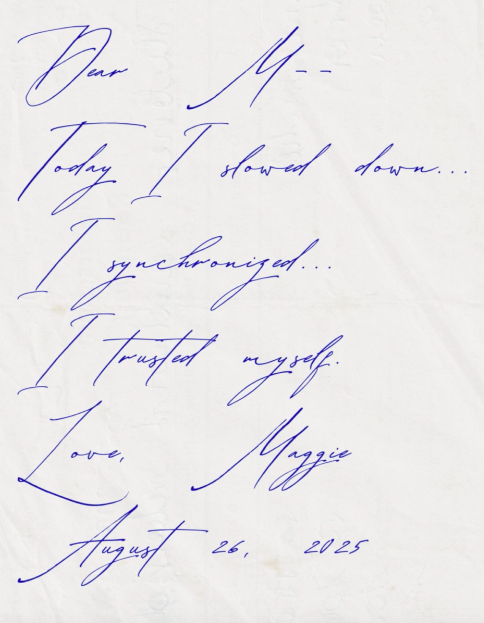 Dear M--
Today I slowed down...
I synchronized...
I trusted myself.
Love, Maggie
August 26, 2025